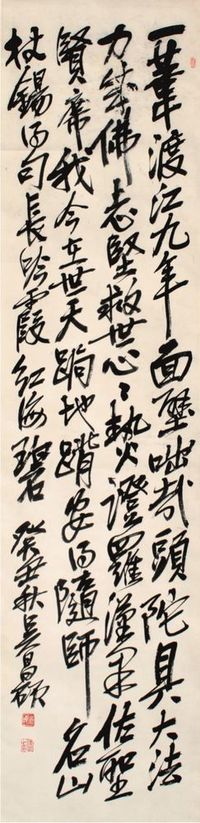 一葦渡江九年面壁咄哉頭陀具大法
力成佛志堅救世心心熱證羅漢果佐聖
賢席我今在世天跼地蹐安得隨師名山
杖錫得句長吟霞紅海碧癸丑秋吳昌碩